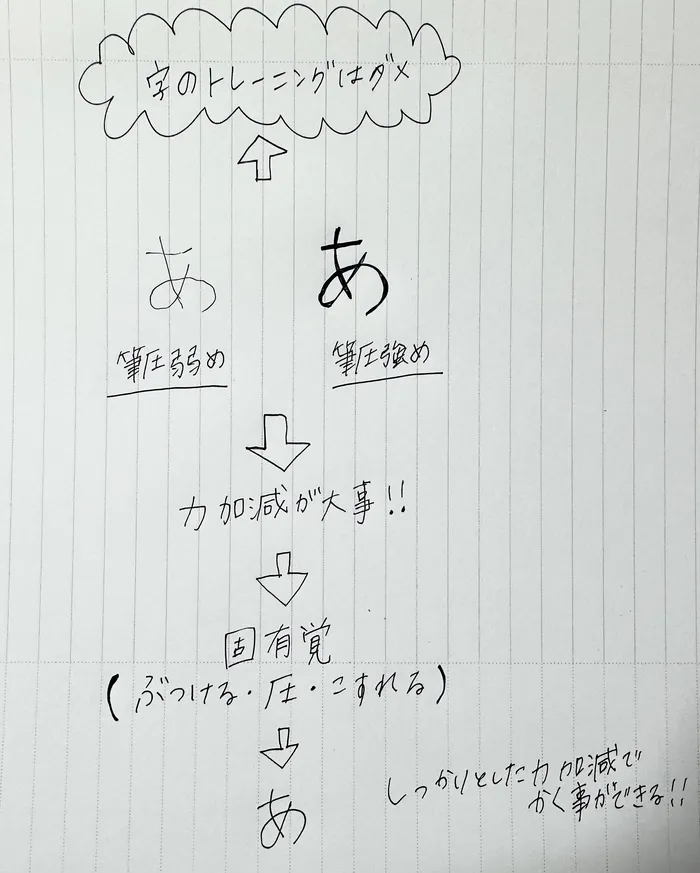 字のトレーニングはダメ
あ あ
筆圧弱め 筆圧強め
力加減が大事!!
固有覚
(ぶつける・圧・こすれる)
あ
しっかりとした力加減で
かく事ができる!!